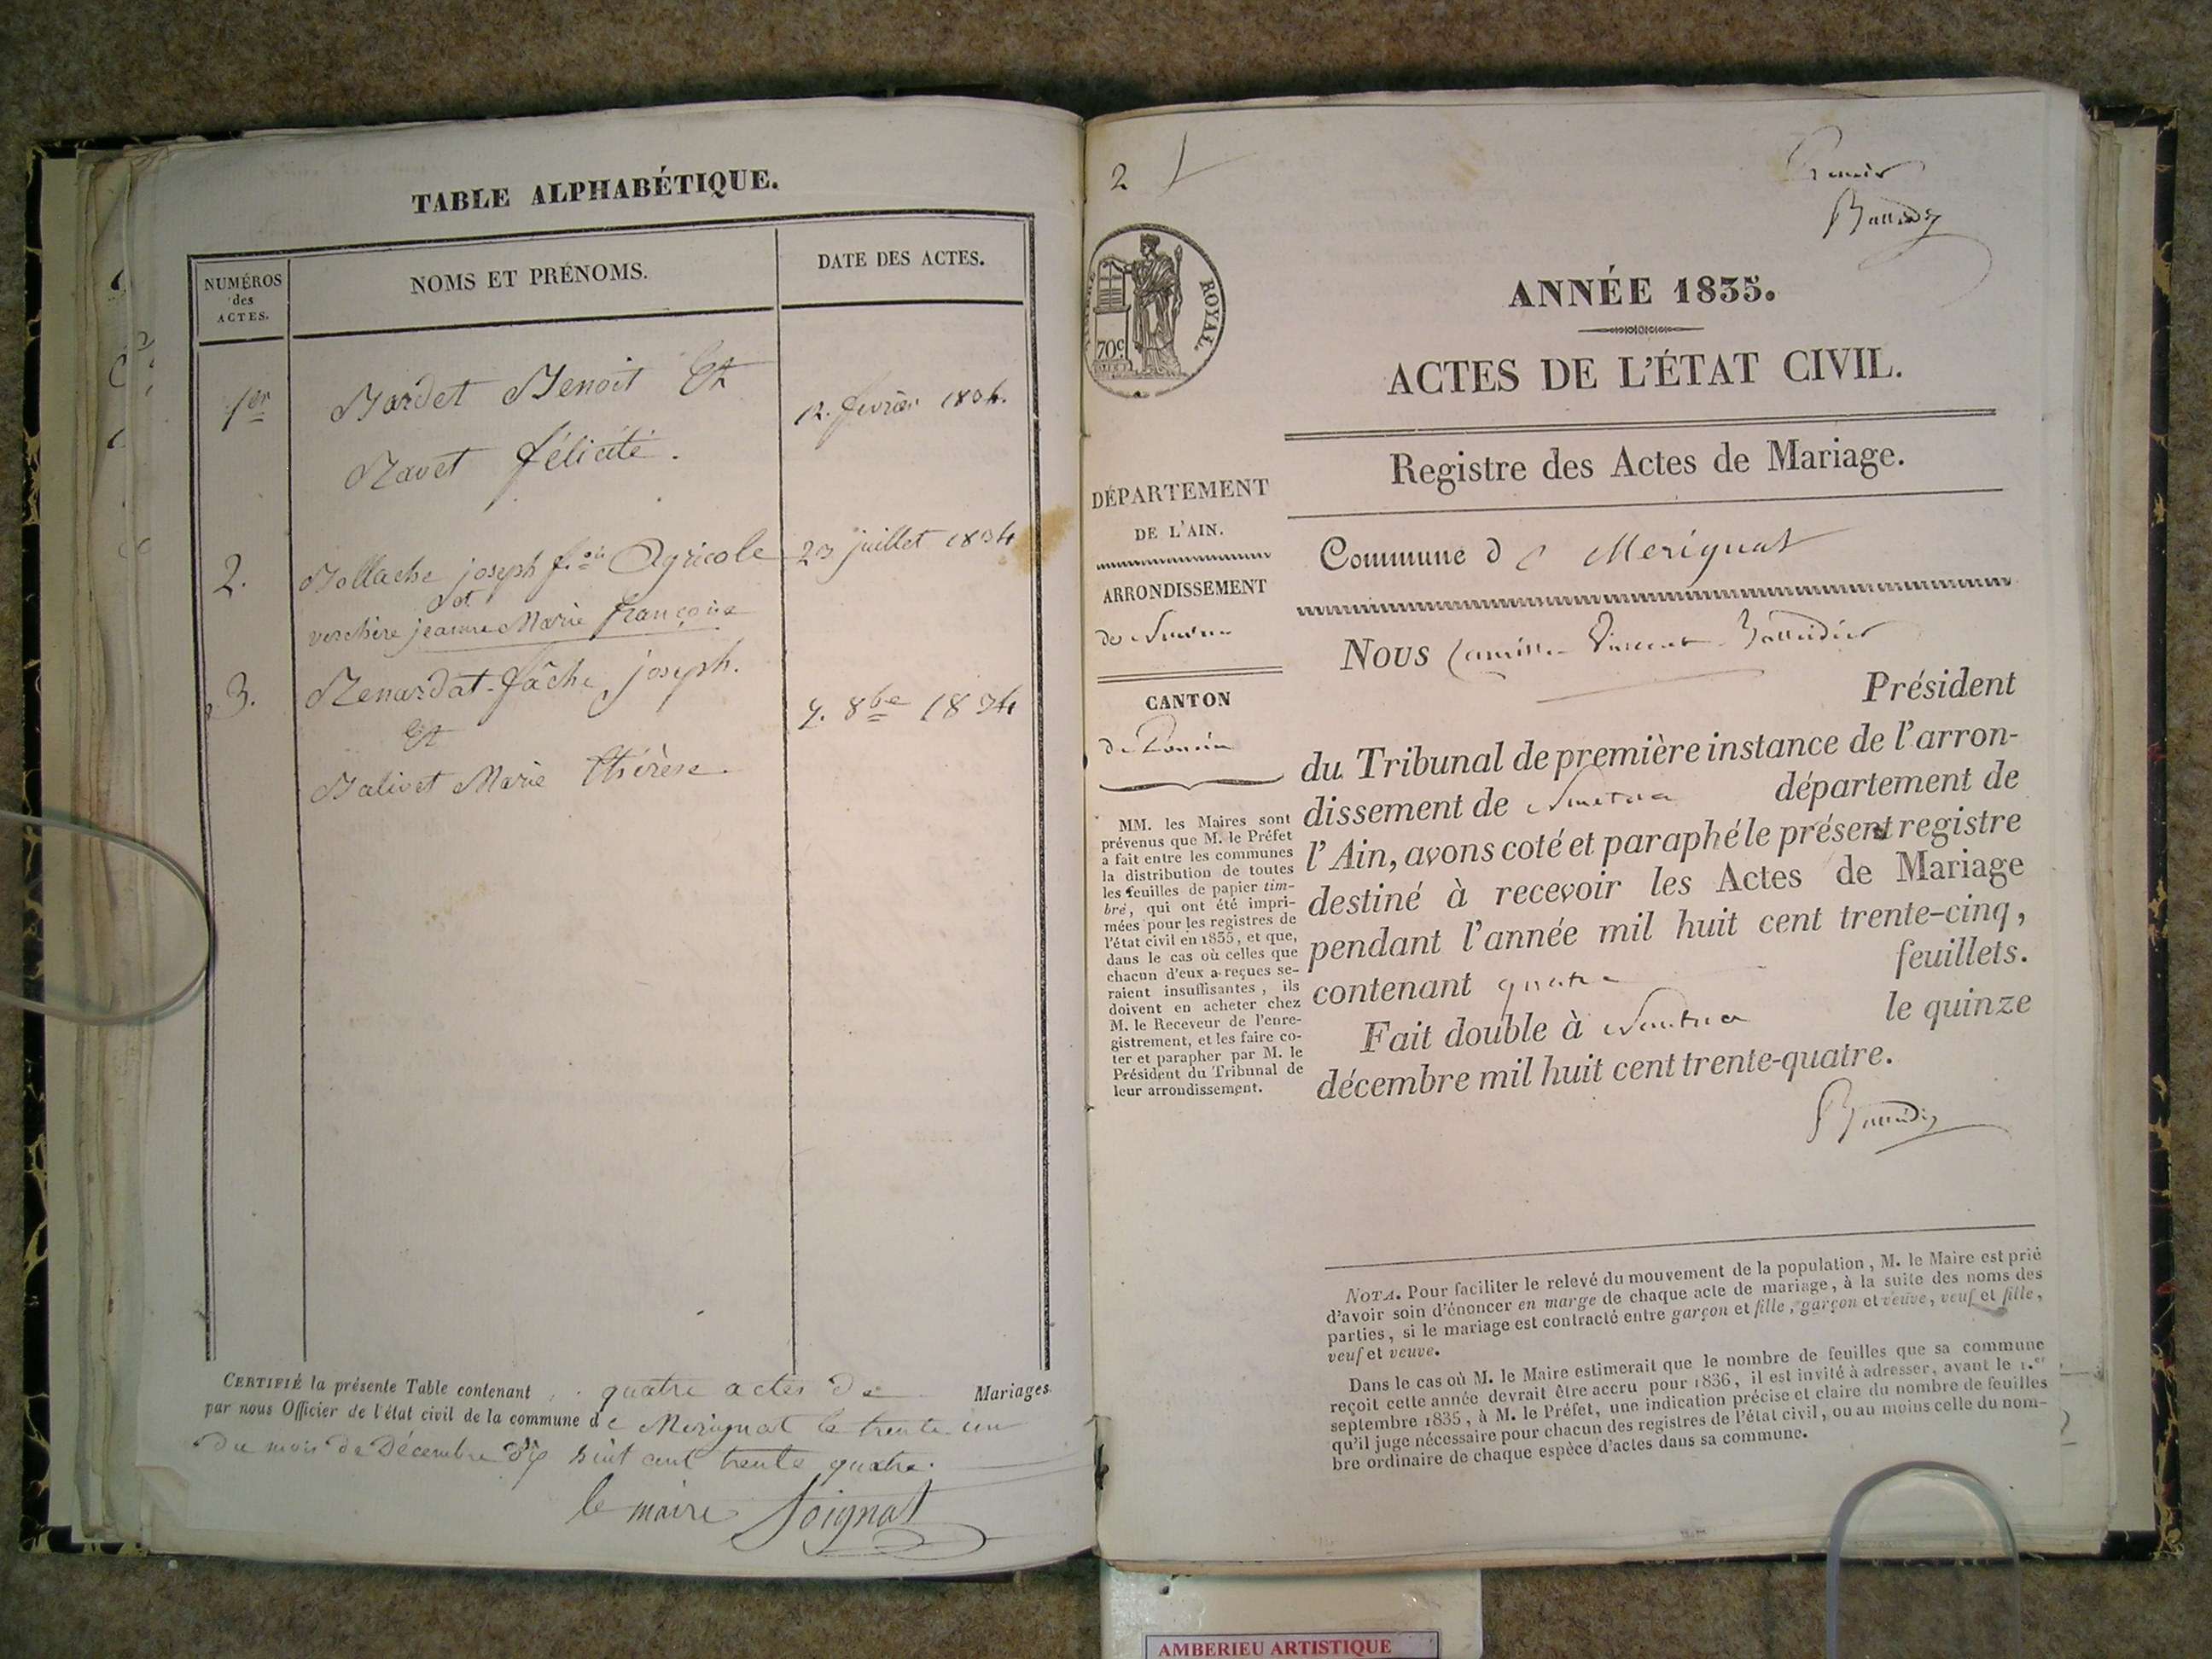 TABLE ALPHABÉTIQUE.
NUMÉROS
des
ACTES.
NOMS ET PRÉNOMS.
DATE DES ACTES.
1er
Bardet Benoit Et
12. février 1834.
Navet félicité.
2.
joseph f.ois Agricole
23 juillet 1834
et
verchère jeanne Marie françoise
3.
Renardat-fâche, joseph.
7. 8bre 1834
Et
Balivet Marie thérèse.
CERTIFIÉ la présente Table contenant quatre actes de Mariages
par nous Officier de l'état civil de la commune de Merignat le trente un
du mois de Décembre dix huit cent trente quatre.
le maire Soignat
2
Premier
ROYAL.
70c
ANNÉE 1835.
ACTES DE L'ÉTAT CIVIL.
Registre des Actes de Mariage.
DÉPARTEMENT
DE L'AIN.
ARRONDISSEMENT
de Nantua
CANTON
de Poncin
MM. les Maires sont
prévenus que M. le Préfet
a fait entre les communes
la distribution de toutes
les feuilles de papier tim-
bré, qui ont été impri-
mées pour les registres de
l'état civil en 1835, et que,
dans le cas où celles que
chacun d'eux a reçues se-
raient insuffisantes, ils
doivent en acheter chez
M. le Receveur de l'enre-
gistrement, et les faire co-
ter et parapher par M. le
Président du Tribunal de
leur arrondissement.
Commune de Merignat
Nous Camille Vincent
Président
du Tribunal de première instance de l'arron-
dissement de Nantua département de
l'Ain, avons coté et paraphé le présent registre
destiné à recevoir les Actes de Mariage
pendant l'année mil huit cent trente-cinq,
contenant quatre feuillets.
Fait double à Nantua le quinze
décembre mil huit cent trente-quatre.
NOTA. Pour faciliter le relevé du mouvement de la population, M. le Maire est prié
d'avoir soin d'énoncer en marge de chaque acte de mariage, à la suite des noms des
parties, si le mariage est contracté entre garçon et fille, garçon et veuve, veuf et fille,
veuf et veuve.
Dans le cas où M. le Maire estimerait que le nombre de feuilles que sa commune
reçoit cette année devrait être accru pour 1836, il est invité à adresser, avant le 1.er
septembre 1835, à M. le Préfet, une indication précise et claire du nombre de feuilles
qu'il juge nécessaire pour chacun des registres de l'état civil, ou au moins celle du nom-
bre ordinaire de chaque espèce d'actes dans sa commune.
AMBERIEU ARTISTIQUE